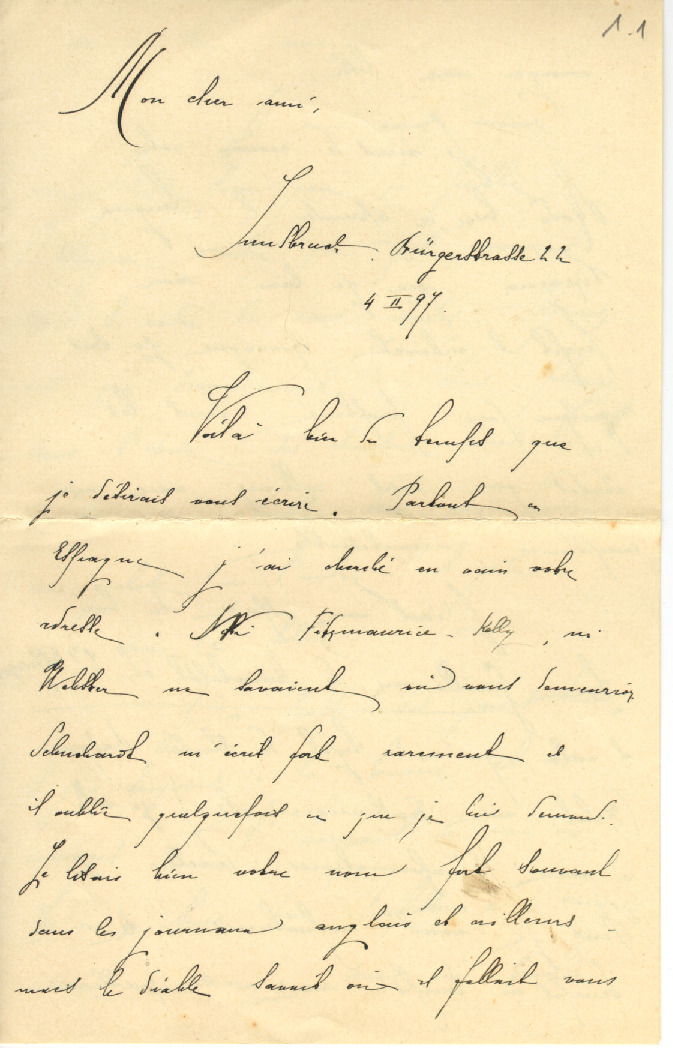 1.1
Mon cher ami,
Innsbruck. Bürgerstrasse 22
4 II 97.
Voilà bien du temps que
je désirais vous écrire. Partout en
Espagne j'ai cherché en vain votre
adresse. Ni Fitzmaurice-Kelly, ni
Webster ne savaient où vous demeuriez
Schuchardt m'écrit fort rarement et
il oublie quelquefois ce que je lui demand.
Je lisais bien votre nom fort souvent
dans les journaux anglais et ailleurs
mais le diable savait où il fallait vous